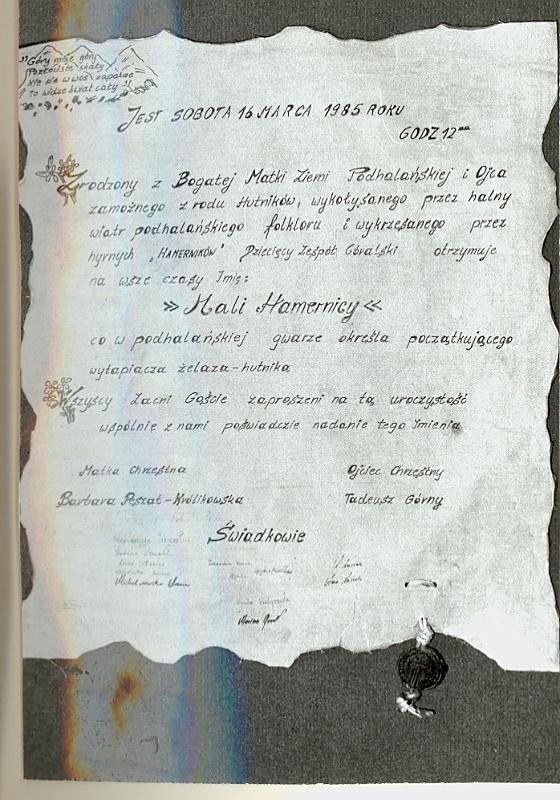 „Góry moje góry
Poztowiste skały
Kie się w was zapatrze
To widze świat cały”
JEST SOBOTA 16 MARCA 1985 ROKU
GODZ 12⁰⁰
Zrodzony z Bogatej Matki Ziemi Podhalańskiej i Ojca
zamożnego z rodu Hutników, wykołysanego przez halny
wiatr podhalańskiego folkloru i wykrzesanego przez
hyrnych „HAMERNIKÓW” Dziecięcy Zespół Góralski otrzymuje
na wsze czasy Imię:
» Mali Hamernicy «
co w podhalańskiej gwarze określa początkującego
wytapiacza żelaza-hutnika
Wszyscy Zacni Goście zaproszeni na tą uroczystość
wspólnie z nami poświadczie nadanie tego Imienia
Matka Chrzestna Ojciec Chrzestny
Barbara Peszat-Królikowska Tadeusz Górny
Świadkowie